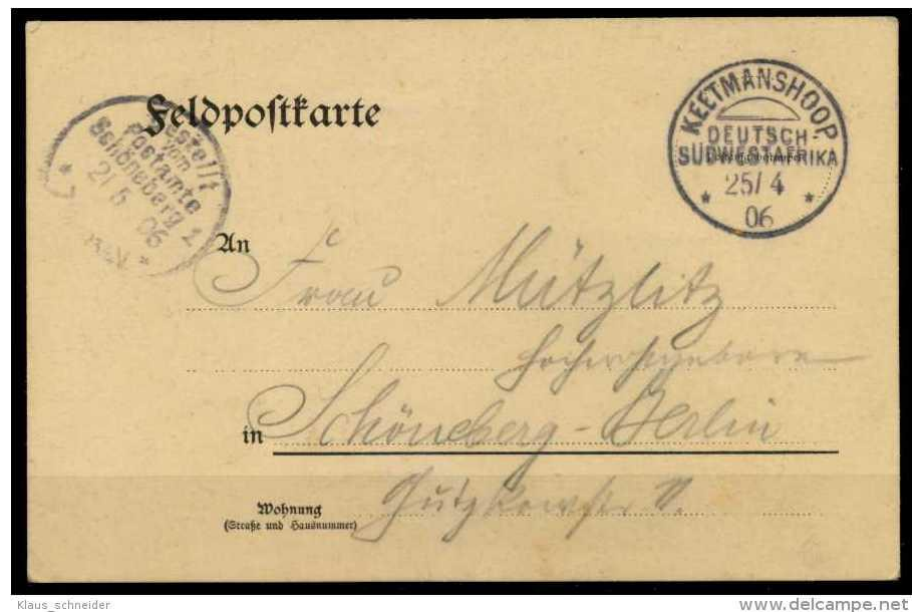 Feldpostkarte
Bestellt
vom
Postamte
Schöneberg 1
21/5
06
KEETMANSHOOP
DEUTSCH-
SÜDWESTAFRIKA
25/4
06
An
Frau Mützlitz
in Schöneberg-Berlin
Wohnung
(Straße und Hausnummer)
Klaus_schneider
delcampe.net